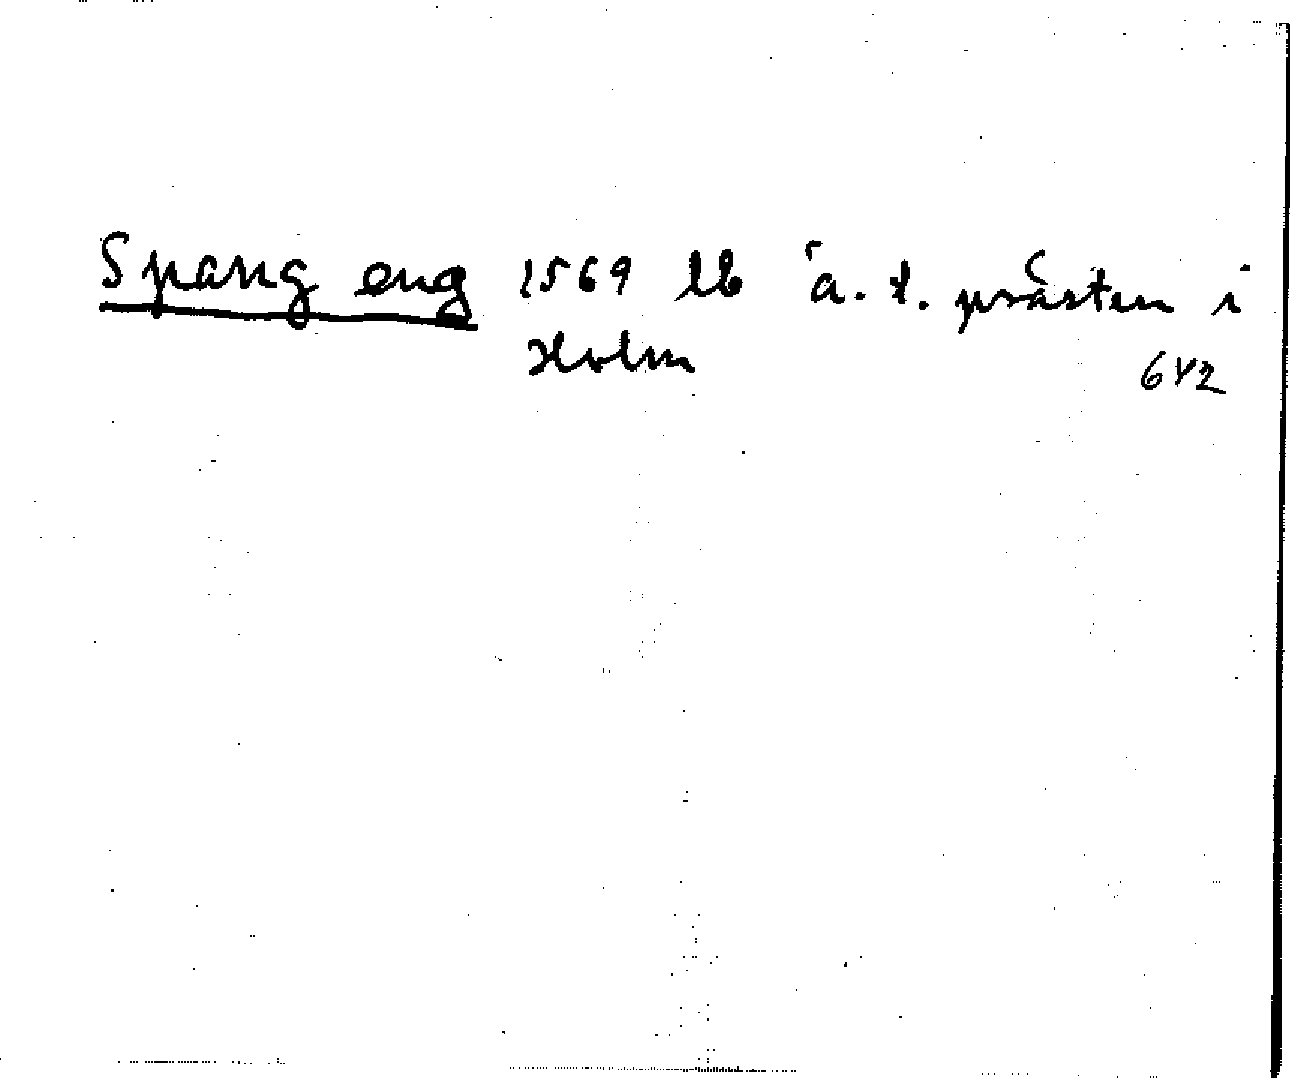 Spang eng 1569 lb å. t. prästen i
Holm 642